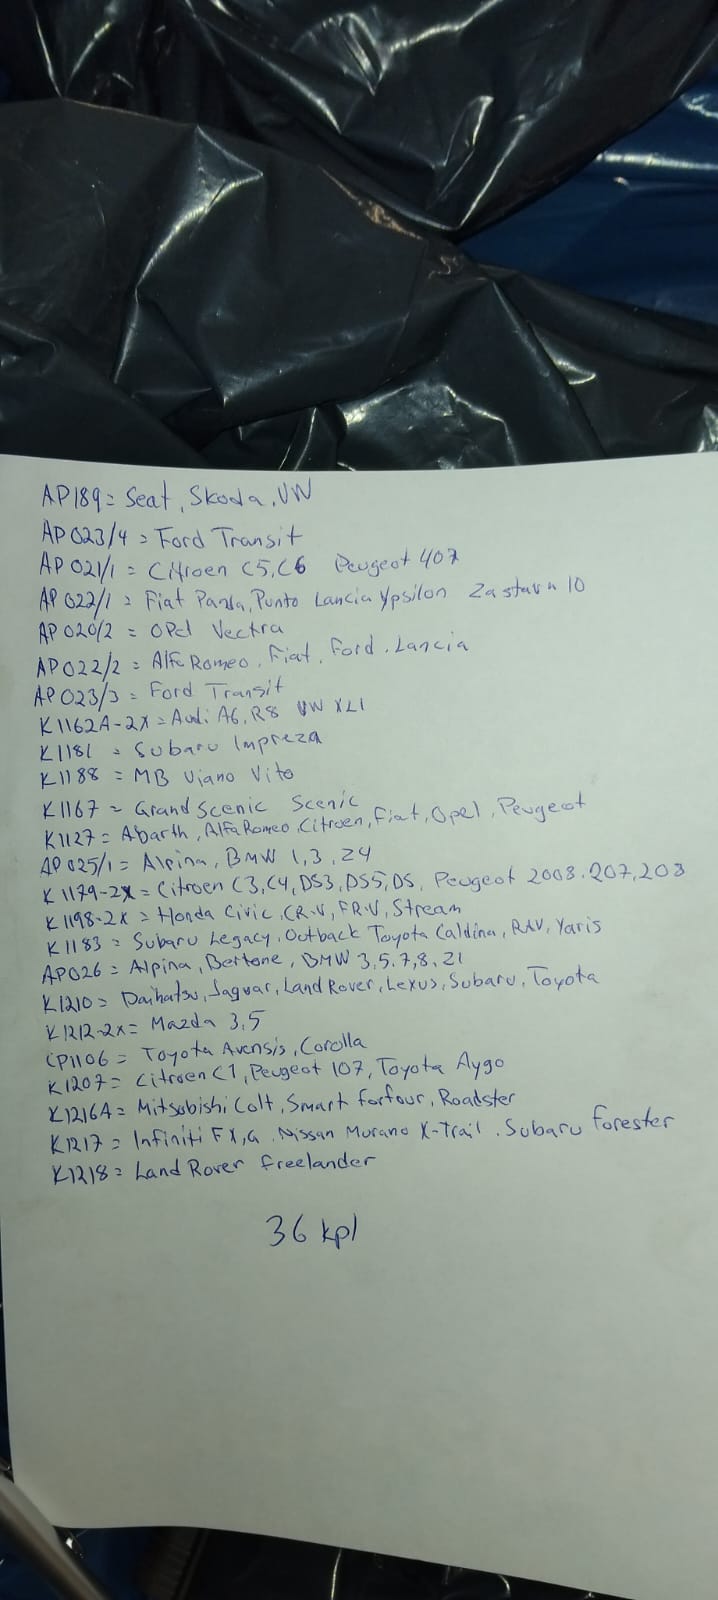 AP189= Seat, Skoda, VW
AP 023/4 = Ford Transit
AP 021/1 = Citroen C5, C6 Peugeot 407
AP 022/1 = Fiat Panda, Punto Lancia Ypsilon Zastava 10
AP 020/2 = Opel Vectra
AP 022/2 = Alfa Romeo, Fiat, Ford, Lancia
AP 023/3 = Ford Transit
K1162A-2X = Audi A6, R8 VW XL1
K1181 = Subaru Impreza
K1188 = MB Viano Vito
K1167 = Grand Scenic Scenic
K1127 = Abarth, Alfa Romeo, Citroen, Fiat, Opel, Peugeot
AP 025/1 = Alpina, BMW 1,3, Z4
K1179-2X = Citroen C3, C4, DS3, DS5, DS, Peugeot 2008, 207, 208
K1198-2X = Honda Civic, CR-V, FR-V, Stream
K1183 = Subaru Legacy, Outback Toyota Caldina, RAV, Yaris
AP026 = Alpina, Bertone, BMW 3,5,7,8, Z1
K1210 = Daihatsu, Jaguar, Land Rover, Lexus, Subaru, Toyota
K1212-2X= Mazda 3,5
CP1106 = Toyota Avensis, Corolla
K1207= Citroen C1, Peugeot 107, Toyota Aygo
K1216A= Mitsubishi Colt, Smart Forfour, Roadster
K1217 = Infiniti FX, G, Nissan Murano X-Trail, Subaru Forester
K1218= Land Rover Freelander
36 kpl